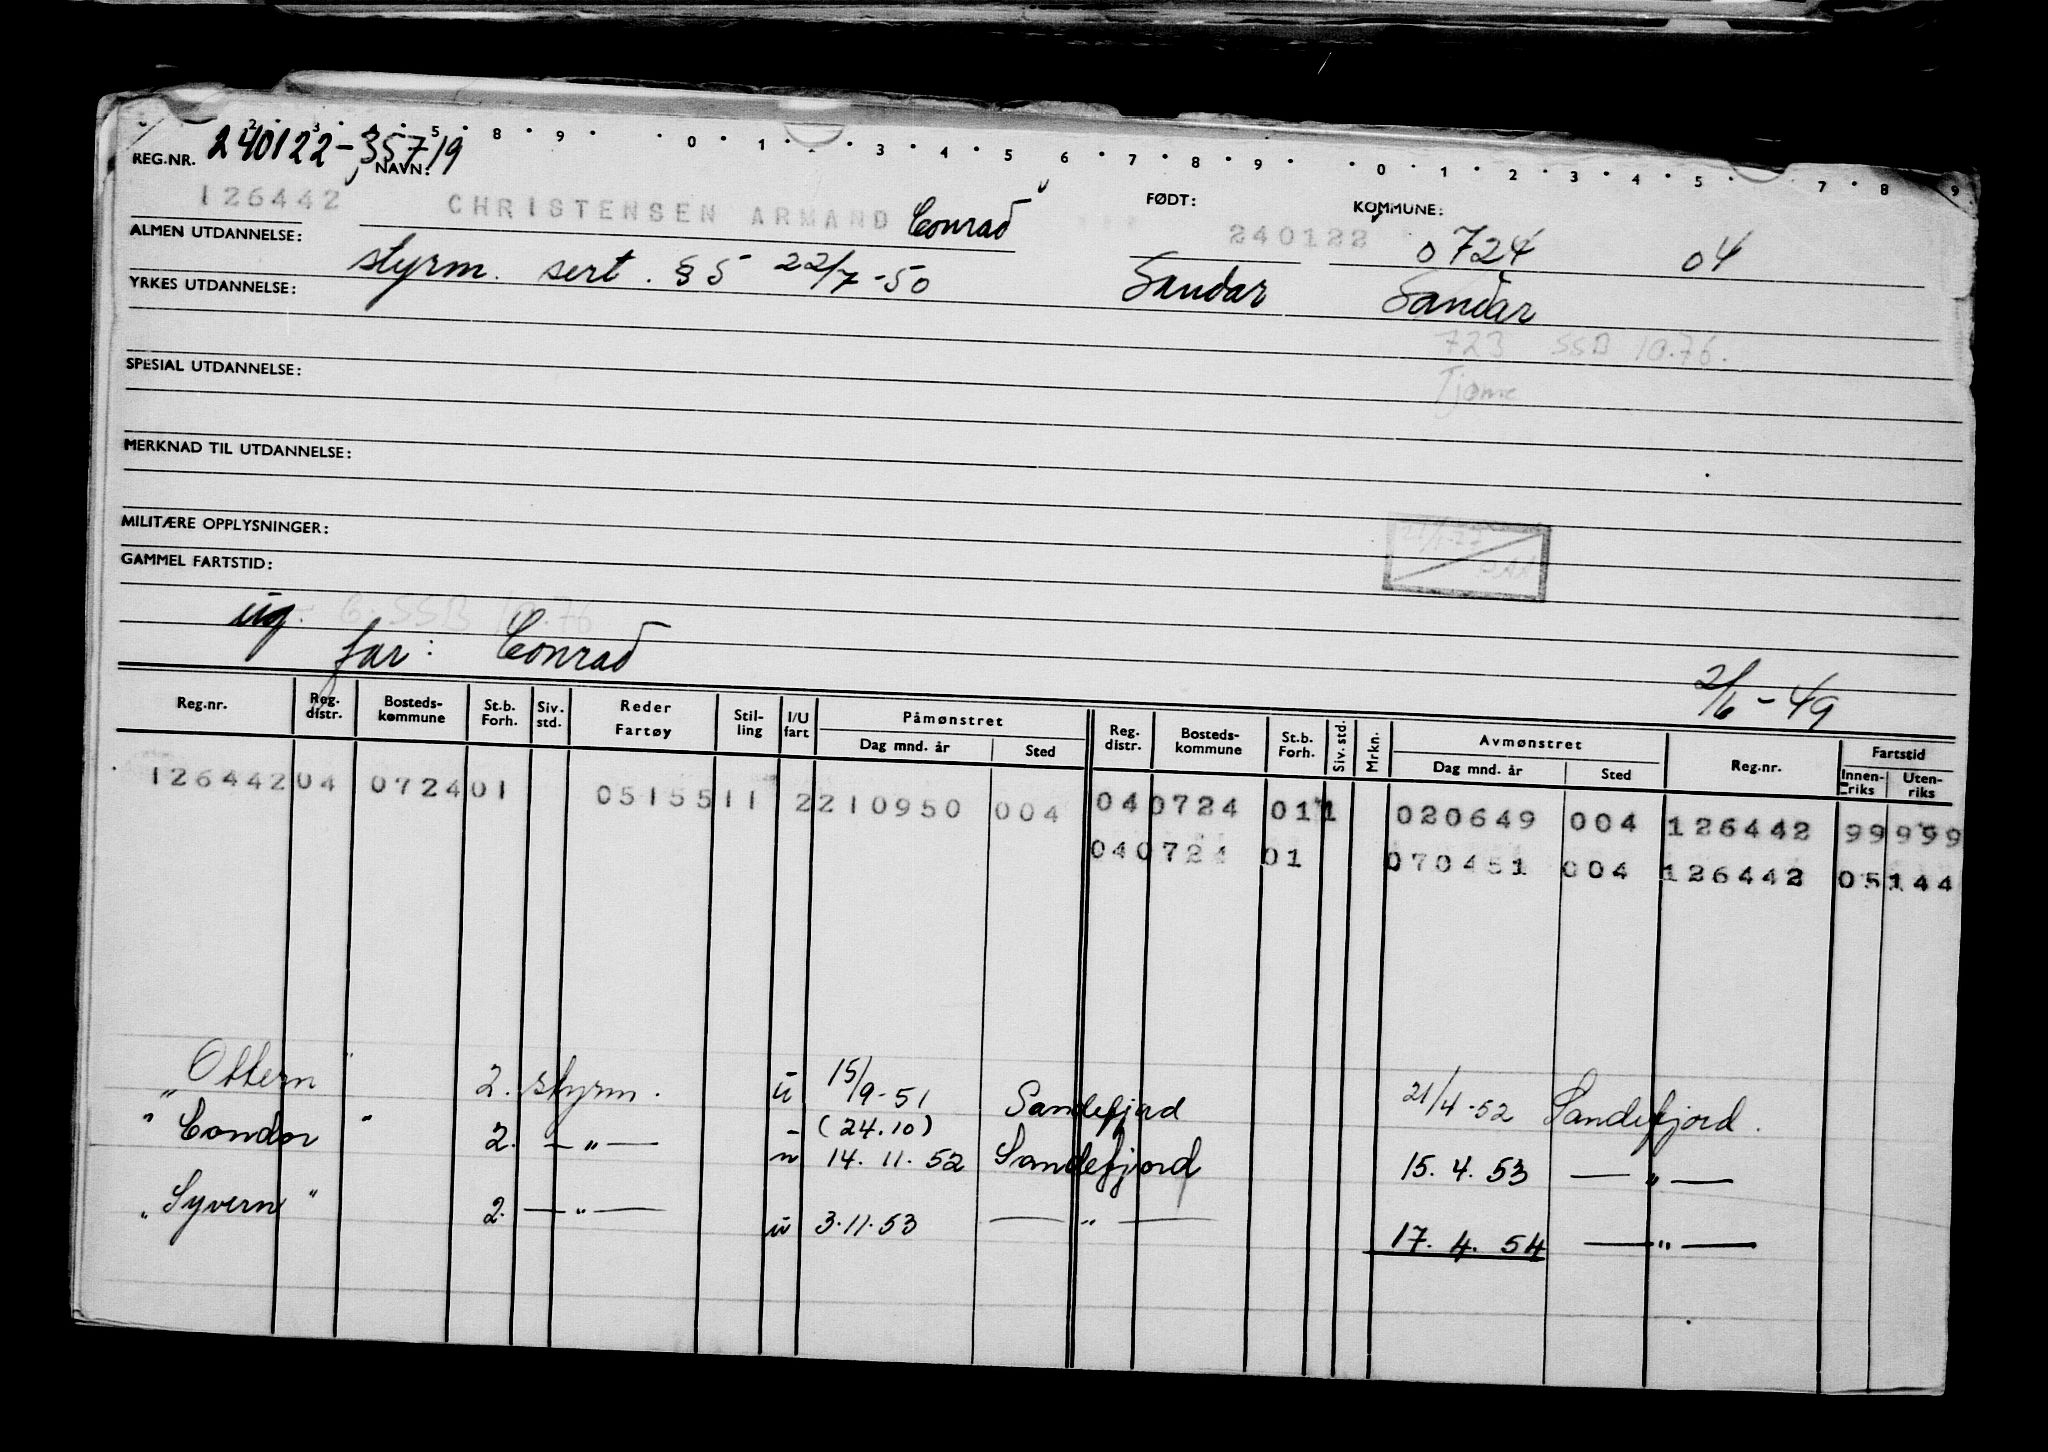 2 3 4 5 8 9 0 1 3 4 5 6 7 8 9 0 1 2 3 4 5 7 8 9
REG.NR. 240122-35719 NAVN: FØDT: KOMMUNE:
126442 CHRISTENSEN ARMAND Conrad 240122 0724 04
ALMEN UTDANNELSE: styrm. sert. §5 22/7-50 Sandar Sandar
YRKES UTDANNELSE:
723 SSB 10.76.
Tjøme
SPESIAL UTDANNELSE:
MERKNAD TIL UTDANNELSE:
MILITÆRE OPPLYSNINGER:
GAMMEL FARTSTID:
ug. G. SSB 10.76
far: Conrad 2/6-49
Reg.nr. Reg. distr. Bosteds-kommune St.b. Forh. Siv. std. Reder Fartøy Stil-ling I/U fart Påmønstret Dag mnd. år Sted Reg. distr. Bosteds-kommune St.b. Forh. Siv. std. Mrkn. Avmønstret Dag mnd. år Sted Reg.nr. Fartstid Innen-riks Uten-riks
126442 04 0724 01 05155 11 2 210950 004 04 0724 01 1 1 020649 004 126442 99 999
04 0724 01 070451 004 126442 05 144
"Ottern" 2. styrm. u 15/9-51 Sandefjord 21/4-52 Sandefjord.
"Condor" 2. — " — u (24.10) 14.11.52 Sandefjord 15.4.53 — " —
"Syvern" 2. — " — u 3.11.53 — " — 17.4.54 — " —